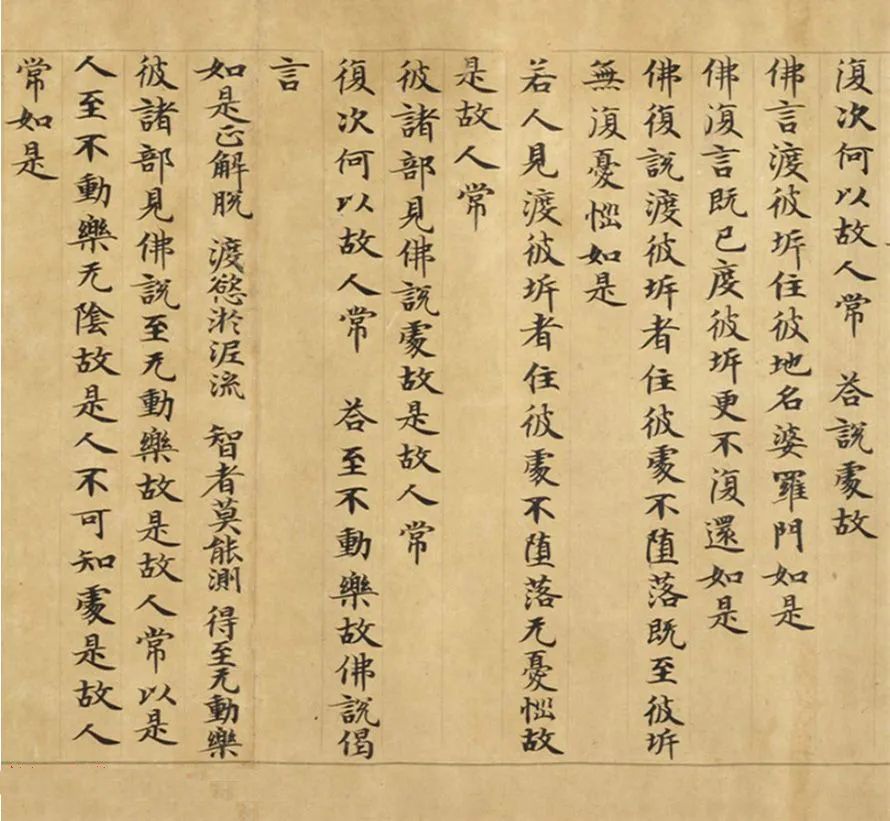 復次何以故人常　荅說處故
佛言渡彼坼住彼地名婆羅門如是
佛復言既已度彼坼更不復還如是
佛復說渡彼坼者住彼處不墮落既至彼坼
無復憂惱如是
若人見渡彼坼者住彼處不墮落无憂惱故
是故人常
彼諸部見佛說處故是故人常
復次何以故人常　荅至不動樂故佛說偈
言
如是正解脫　渡慾淤泥流　智者莫能測　得至无動樂
彼諸部見佛說至无動樂故是故人常以是
人至不動樂无陰故是人不可知處是故人
常如是